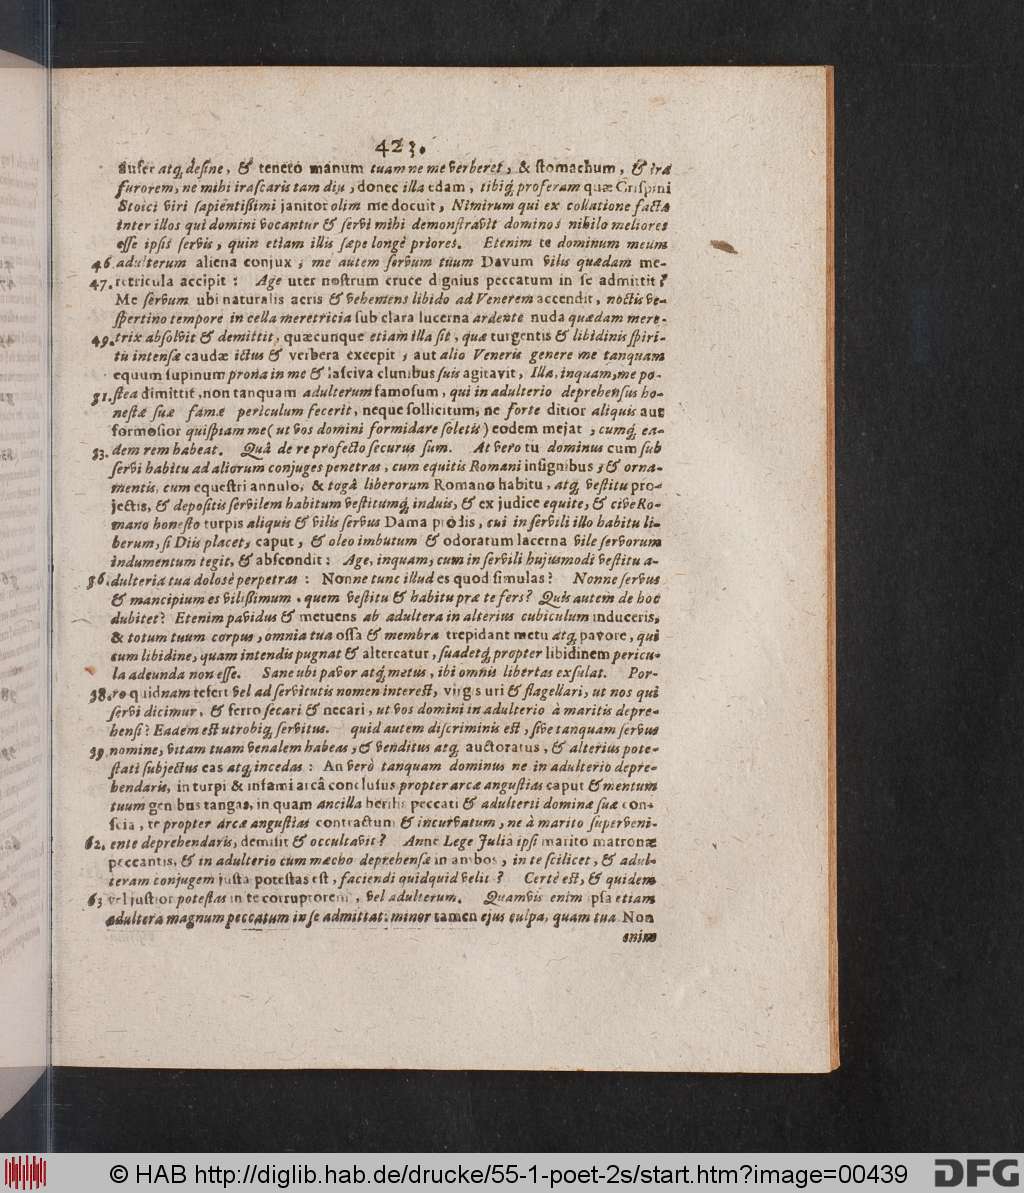 423.
aufer atq́; desine, & teneto manum tuam ne me verberet, & stomachum, & iræ
furorem, ne mihi irascaris tam diu, donec illa edam, tibiq́; proferam quæ Crispini
Stoici viri sapientissimi janitor olim me docuit, Nimirum qui ex collatione facta
inter illos qui domini vocantur & servi mihi demonstravit dominos nihilo meliores
esse ipsis servis, quin etiam illis sæpe longè priores. Etenim te dominum meum
46. adulterum aliena conjux, me autem servum tuum Davum vilis quædam me-
47. retricula accipit: Age uter nostrum cruce dignius peccatum in se admittit?
Me servum ubi naturalis acris & vehemens libido ad Venerem accendit, noctis ve-
spertino tempore in cella meretricia sub clara lucerna ardente nuda quædam mere-
49. trix absolvit & demittit, quæcunque etiam illa sit, quæ turgentis & libidinis spiri-
tu intensæ caudæ ictus & verbera excepit, aut alio Veneris genere me tanquam
equum supinum prona in me & lasciva clunibus suis agitavit, Illa, inquam, me po-
51. stea dimittit, non tanquam adulterum famosum, qui in adulterio deprehensus ho-
nestæ suæ famæ periculum fecerit, neque sollicitum, ne forte ditior aliquis aut
formosior quispiam me (ut vos domini formidare soletis) eodem mejat, cumq́; ea-
dem rem habeat. Quâ de re profecto securus sum. At vero tu dominus cum sub
53. servi habitu ad aliorum conjuges penetras, cum equitis Romani insignibus, & orna-
mentis, cum equestri annulo, & togâ liberorum Romano habitu, atq́; vestitu pro-
jectis, & depositis servilem habitum vestitumq́; induis, & ex judice equite, & cive Ro-
mano honesto turpis aliquis & vilis servus Dama prodis, cui in servili illo habitu li-
berum, si Diis placet, caput, & oleo imbutum & odoratum lacerna vile servorum
indumentum tegit, & abscondit: Age, inquam, cum in servili hujusmodi vestitu a-
56. dulteria tua dolosè perpetras: Nonne tunc illud es quod simulas? Nonne servus
& mancipium es vilissimum, quem vestitu & habitu præ te fers? Quis autem de hoc
dubitet? Etenim pavidus & metuens ab adultera in alterius cubiculum induceris,
& totum tuum corpus, omnia tua ossa & membra trepidant metu atq́; pavore, qui
cum libidine, quam intendis pugnat & altercatur, suadetq́; propter libidinem pericu-
la adeunda non esse. Sane ubi pavor atq́; metus, ibi omnis libertas exsulat. Por-
58. ro quidnam refert vel ad servitutis nomen interest, virgis uri & flagellari, ut nos qui
servi dicimur, & ferro secari & necari, ut vos domini in adulterio à maritis depre-
hensi? Eadem est utrobiq́; servitus. quid autem discriminis est, sive tanquam servus
59. nomine, vitam tuam venalem habeas, & venditus atq́; auctoratus, & alterius pote-
stati subjectus eas atq́; incedas: An verò tanquam dominus ne in adulterio depre-
hendaris, in turpi & infami arcâ conclusus propter arcæ angustias caput & mentum
tuum genibus tangas, in quam ancilla herilis peccati & adulterii dominæ suæ con-
scia, te propter arcæ angustias contractum & incurvatum, ne à marito superveni-
62. ente deprehendaris, demisit & occultavit? Anne Lege Julia ipsi marito matronæ
peccantis, & in adulterio cum mœcho deprehensæ in ambos, in te scilicet, & adul-
teram conjugem justa potestas est, faciendi quidquid velit? Certè est, & quidem
63 vel justior potestas in te corruptorem, vel adulterum. Quamvis enim ipsa etiam
adultera magnum peccatum in se admittat: minor tamen ejus culpa, quam tua Non
enim
© HAB http://diglib.hab.de/drucke/55-1-poet-2s/start.htm?image=00439
DFG